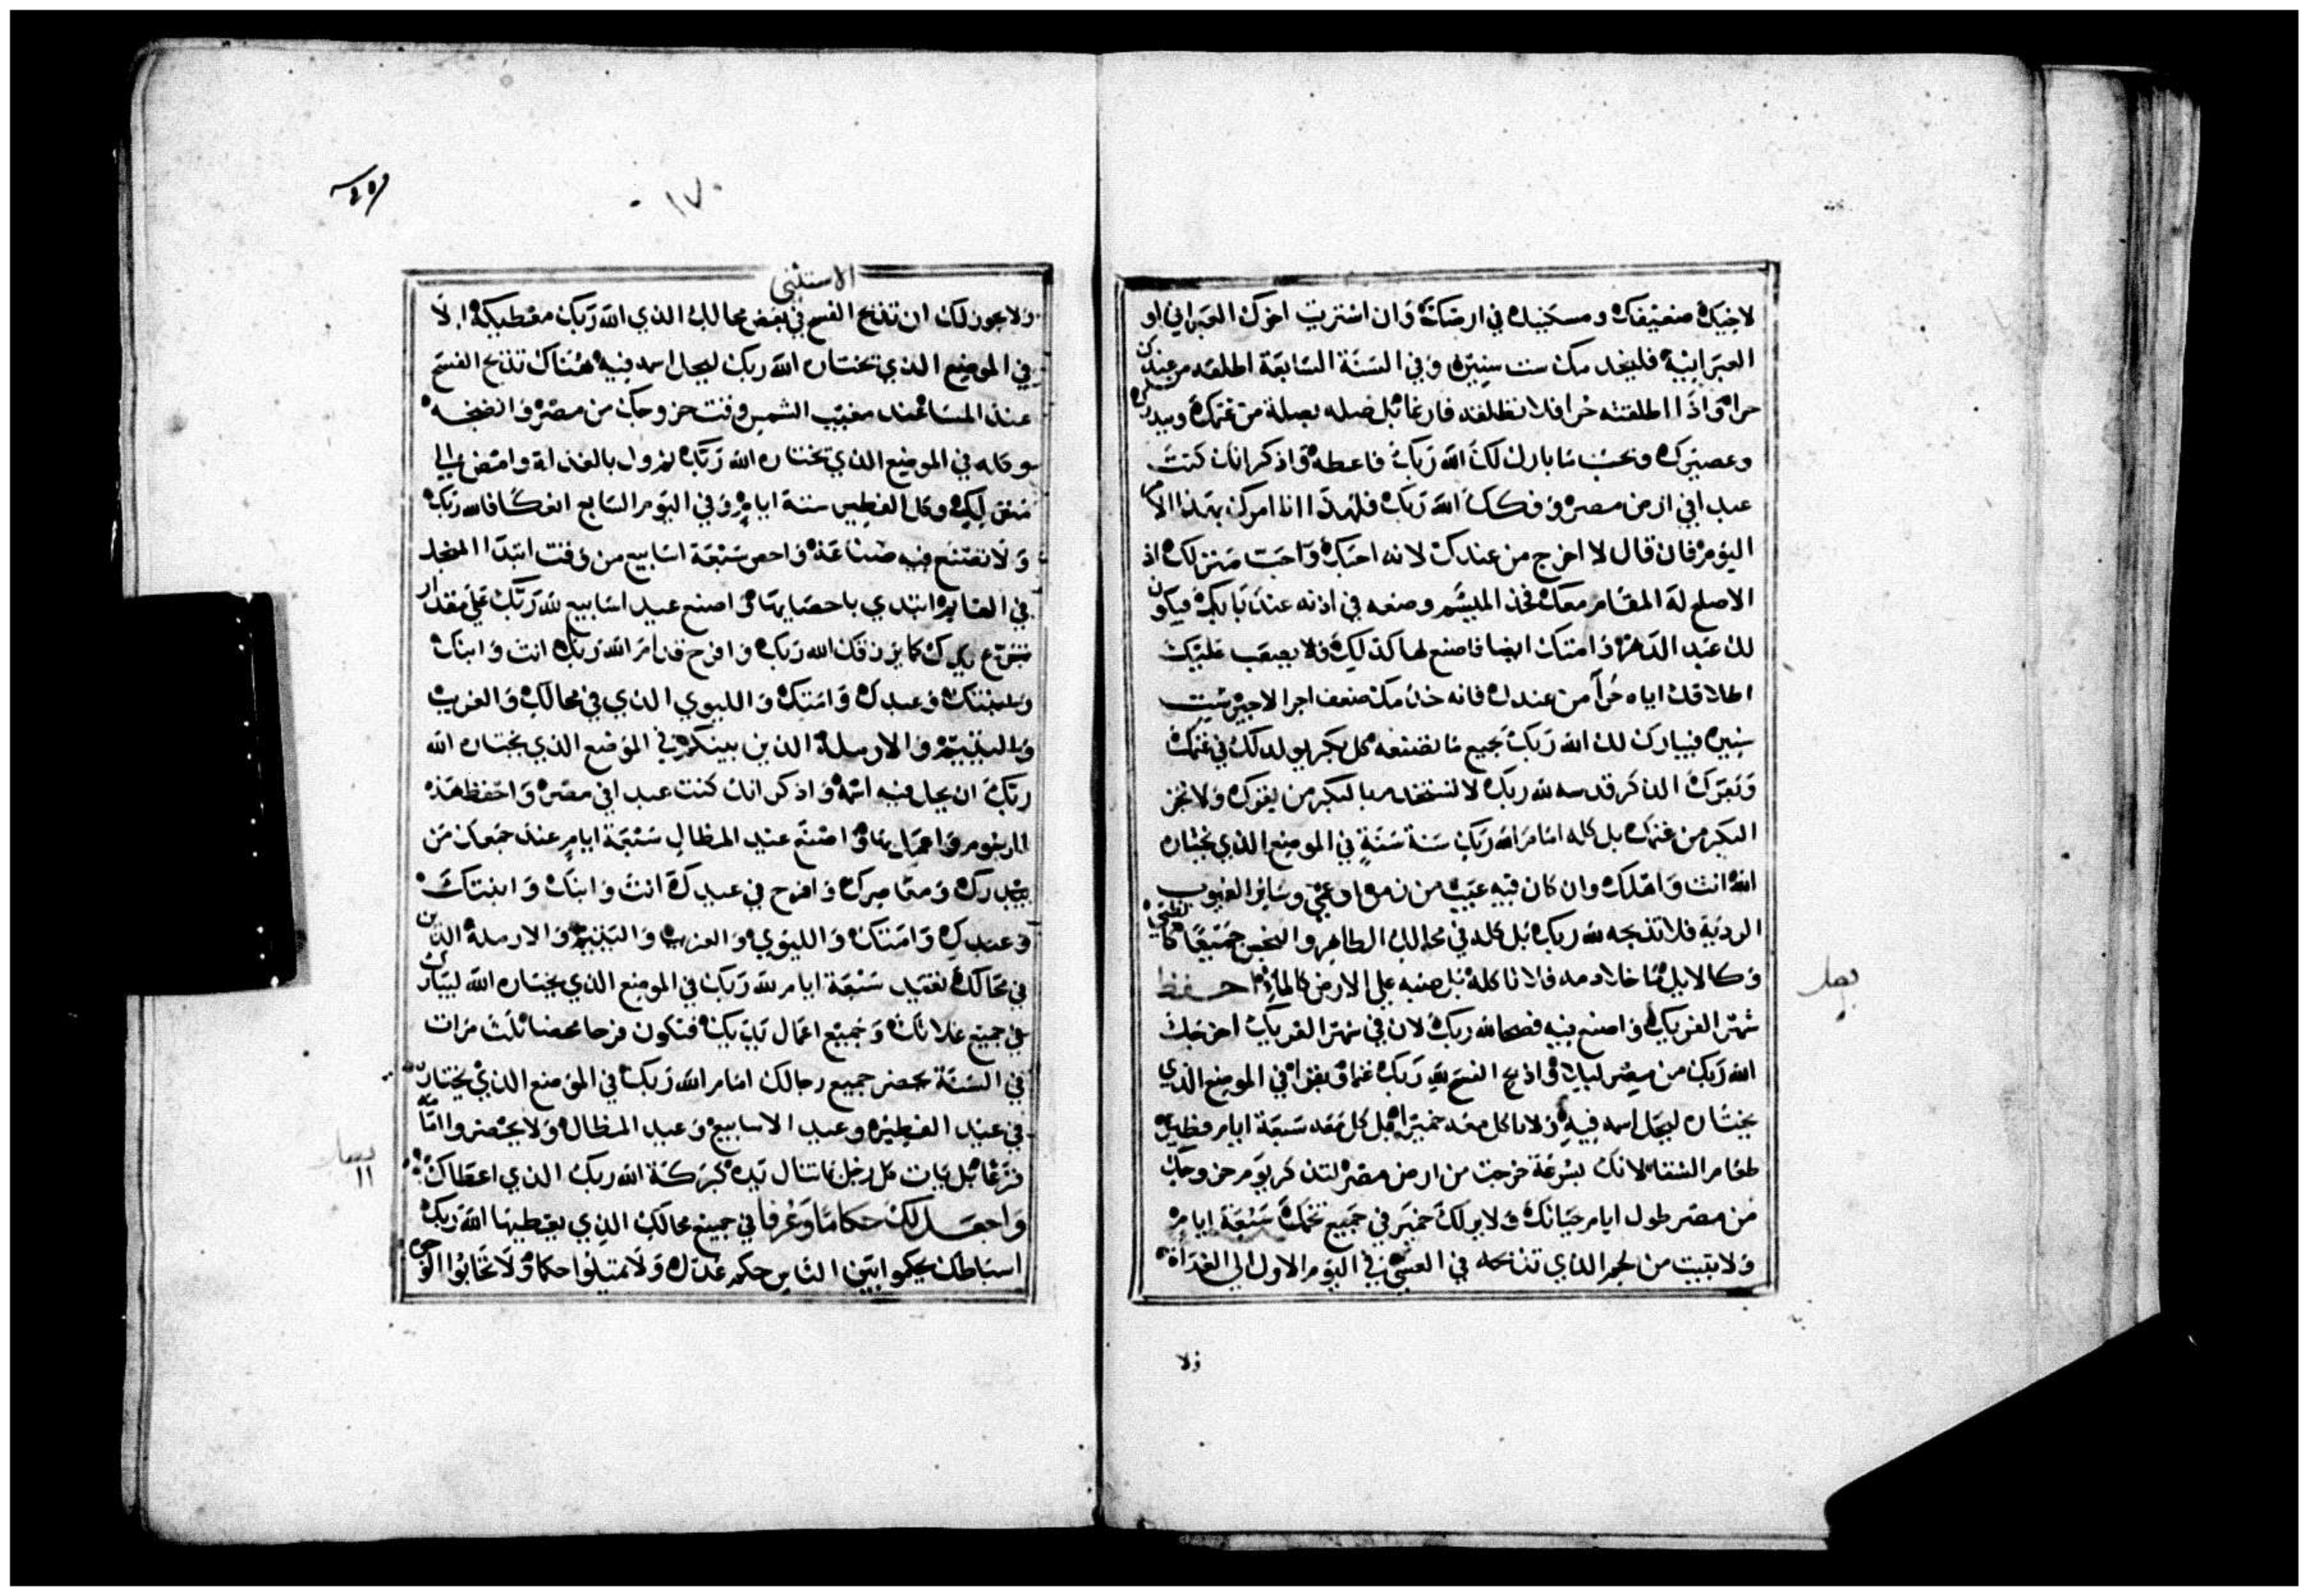 لاخيك ضعيفك ومسكنيك في ارضك وان اشتريت اخوك العبراني او
العبرانية فليخدمك ست سنين وفي السنة السابعة اطلقه من عندك
حرا واذا اطلقته حرا فلا تطلقه فارغا بل صله بصلة من غنمك وبيدرك
وعصيرك وبحسب ما بارك لك الله ربك فاعطه واذكر انك كنت
عبدا في ارض مصر وفكك الله ربك فلهذا انا امرك بهذا الامر
اليوم فان قال لا اخرج من عندك لانه احبك واحب منزلك اذ
الاصلح له المقام معك فخذ الميشم وضعه في اذنه عند بابك فيكون
لك عبد الدهر وامتك ايضا فاصنع لها كذلك ولا يصعب عليك
اطلاقك اياه حرا من عندك فانه خدمك ضعف اجر الاجير ست
سنين فيبارك لك الله ربك بجميع ما تصنعه كل بكر يولد لك في غنمك
وبقرك الذكر قدسه لله ربك لا تستخدم بالبكر من بقرك ولا تجز
البكر من غنمك بل كله امام الله ربك سنة سنة في الموضع الذي يختاره
الله انت واهلك وان كان فيه عيب من زمن او عمي وساير العيوب
الردية فلا تذبحه لله ربك بل كله في محالك الطاهر والنجس جميعا كالظبي
وكالايل ما خلا دمه فلا تاكله بل صبه على الارض كالماء احفظ
شهر الفريك واصنع فيه فصحا لله ربك لان في شهر الفريك اخرجك
الله ربك من مصر ليلا واذبح الفسح لله ربك غنما وبقرا في الموضع الذي
يختاره ليجل اسمه فيه ولا تاكل معه خميرا بل كل معه سبعة ايام فطير
طعام الشقا لانك بسرعة خرجت من ارض مصر لتذكر يوم خروجك
من مصر طول ايام حياتك ولا ير لك خمير في جميع تخمك سبعة ايام
ولا تبيت من لحم الذي تذبحه في العشي في اليوم الاول الى الغداة
بصل
ولا
١٧٠
الاستثنى
ولا يجوز لك ان تذبح الفسح في بعض محالك الذي الله ربك معطيكه الا
في الموضع الذي يختاره الله ربك ليجل اسمه فيه هناك تذبح الفسح
عند المسا عند مغيب الشمس وقت خروجك من مصر وانضجه
وكله في الموضع الذي يختاره الله ربك ثم ول بالغداة وامض الى
وكل الفطير ستة ايام وفي اليوم السابع اعتكافا لله ربك
ولا تصنع فيه صناعة واحص سبعة اسابيع من وقت ابتدا المنجل
في القايم ابتدي باحصايها واصنع عيد اسابيع لله ربك على مقدار
تبرع يدك كما يرزقك الله ربك وافرح قدام الله ربك انت وابنك
وابنتك وعبدك وامتك والليوي الذي في محالك والغريب
واليتيم والارملة الذين بينكم في الموضع الذي يختاره الله
ربك ان يحل فيه اسمه واذكر انك كنت عبدا في مصر واحفظ هذه
الرسوم واعمل بها واصنع عيد المظال سبعة ايام عند جمعك من
بيدرك ومعاصرك وافرح في عيدك انت وابنك وابنتك
وعبدك وامتك والليوي والغريب واليتيم والارملة الذين
في محالك تعيد سبعة ايام لله ربك في الموضع الذي يختاره الله ليبارك
في جميع غلاتك وجميع اعمال يديك فتكون فرحا محضا ثلث مرات
في السنة يحضر جميع رجالك امام الله ربك في الموضع الذي يختاره
في عيد الفطير وعيد الاسابيع وعيد المظال ولا يحضروا امامه
فرغا بل يات كل رجل بما تنال يده كبركة الله ربك الذي اعطاك
واجعل لك حكاما وعرفا في جميع محالك الذي يعطيها الله ربك
اسباطك يحكموا بين الناس حكم عدل ولا تميلوا حكما ولا تحابوا الوجوه